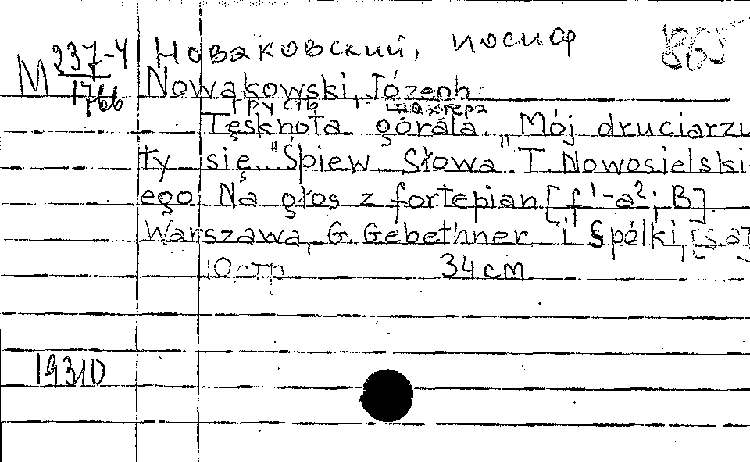 М 237-4/1766 Новаковский, Иосиф 865
Nowakowski, Józeph
грусть
Tęsknota górala „Mój druciarzu
ty się" Śpiew Słowa T. Nowosielski-
ego. Na głos z fortepian [f¹-a²; B]
Warszawa, G. Gebethner i Spólki, [s.a]
10 стр 34 cm
19310